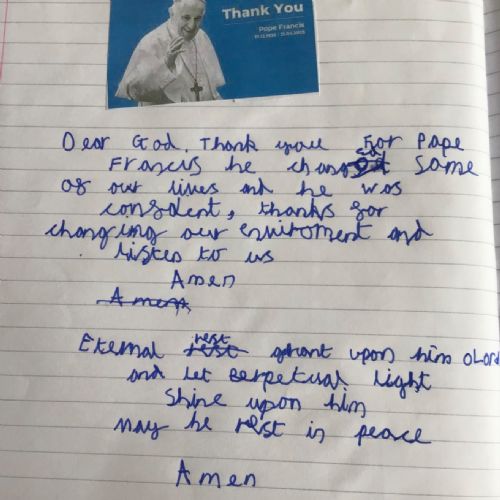 Thank You
Pope Francis
17.12.1936 - 21.04.2025
Dear God, Thank you For Pope
Francis he changed some
of our lives and he was
consdent, thanks for
changing our enviroment and
listen to us
Amen
Amen
Eternal rest rest ghant upon him oLord
and let Berpetual light
Shine upon him
may he rest in peace
Amen